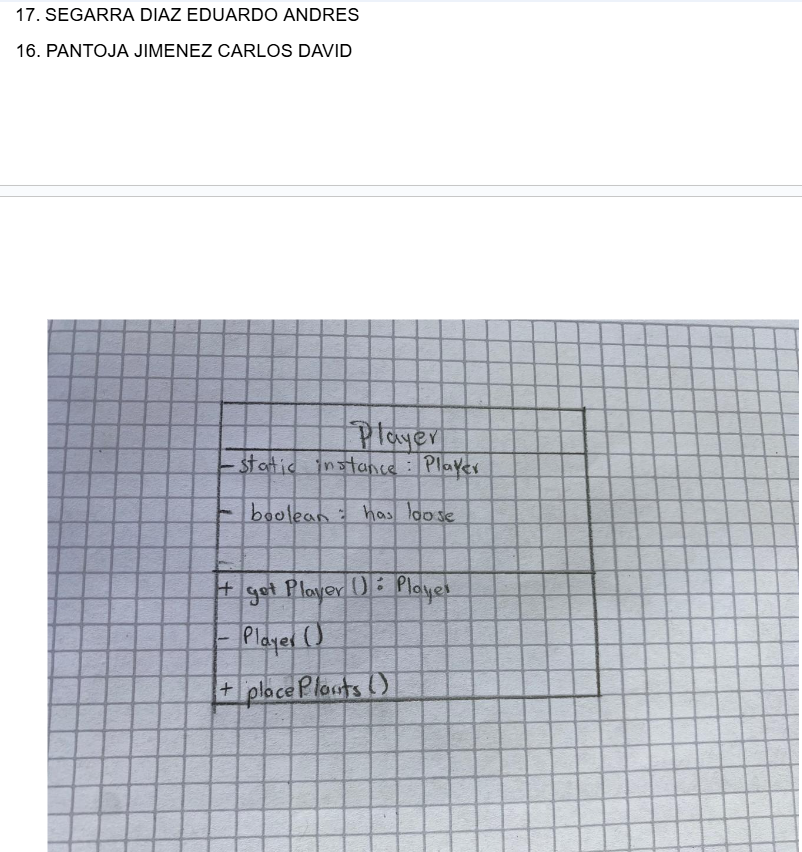 17. SEGARRA DIAZ EDUARDO ANDRES
16. PANTOJA JIMENEZ CARLOS DAVID
Player
- static instance : Player
- boolean : has loose
-
+ get Player () : Player
- Player ()
+ place Plants ()